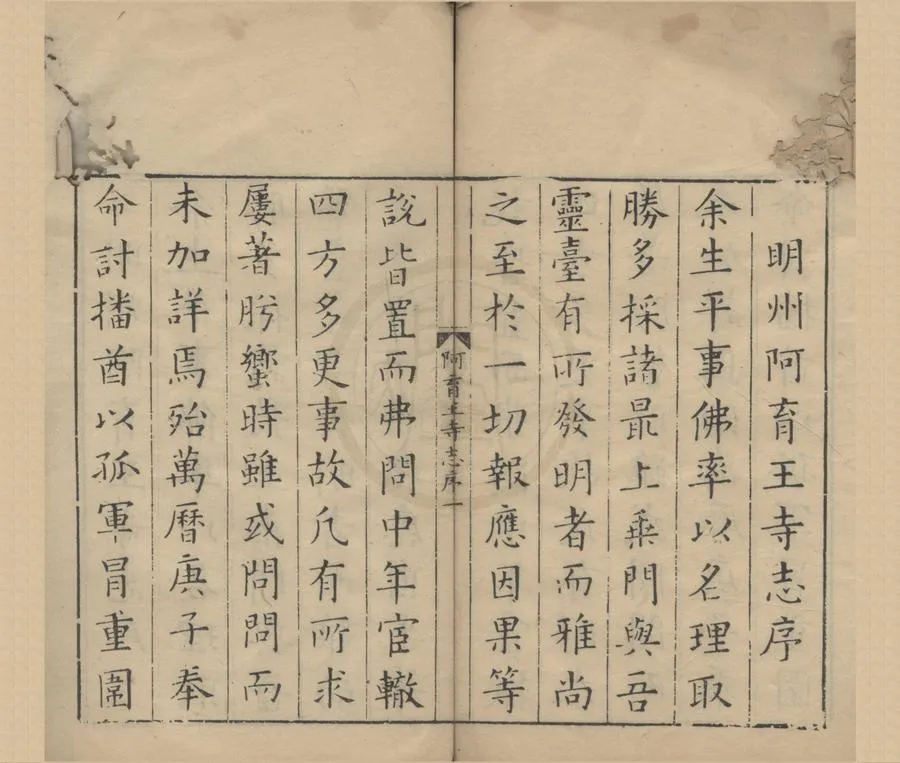 明州阿育王寺志序
余生平事佛率以名理取
勝多採諸最上乗門與吾
靈臺有所發明者而雅尚
之至於一切報應因果等
阿育王寺志序一
說皆置而弗問中年宦轍
四方多更事故凡有所求
屢著肹蠁時雖或問問而
未加詳焉殆萬曆庚子奉
命討播酋以孤軍冒重圍